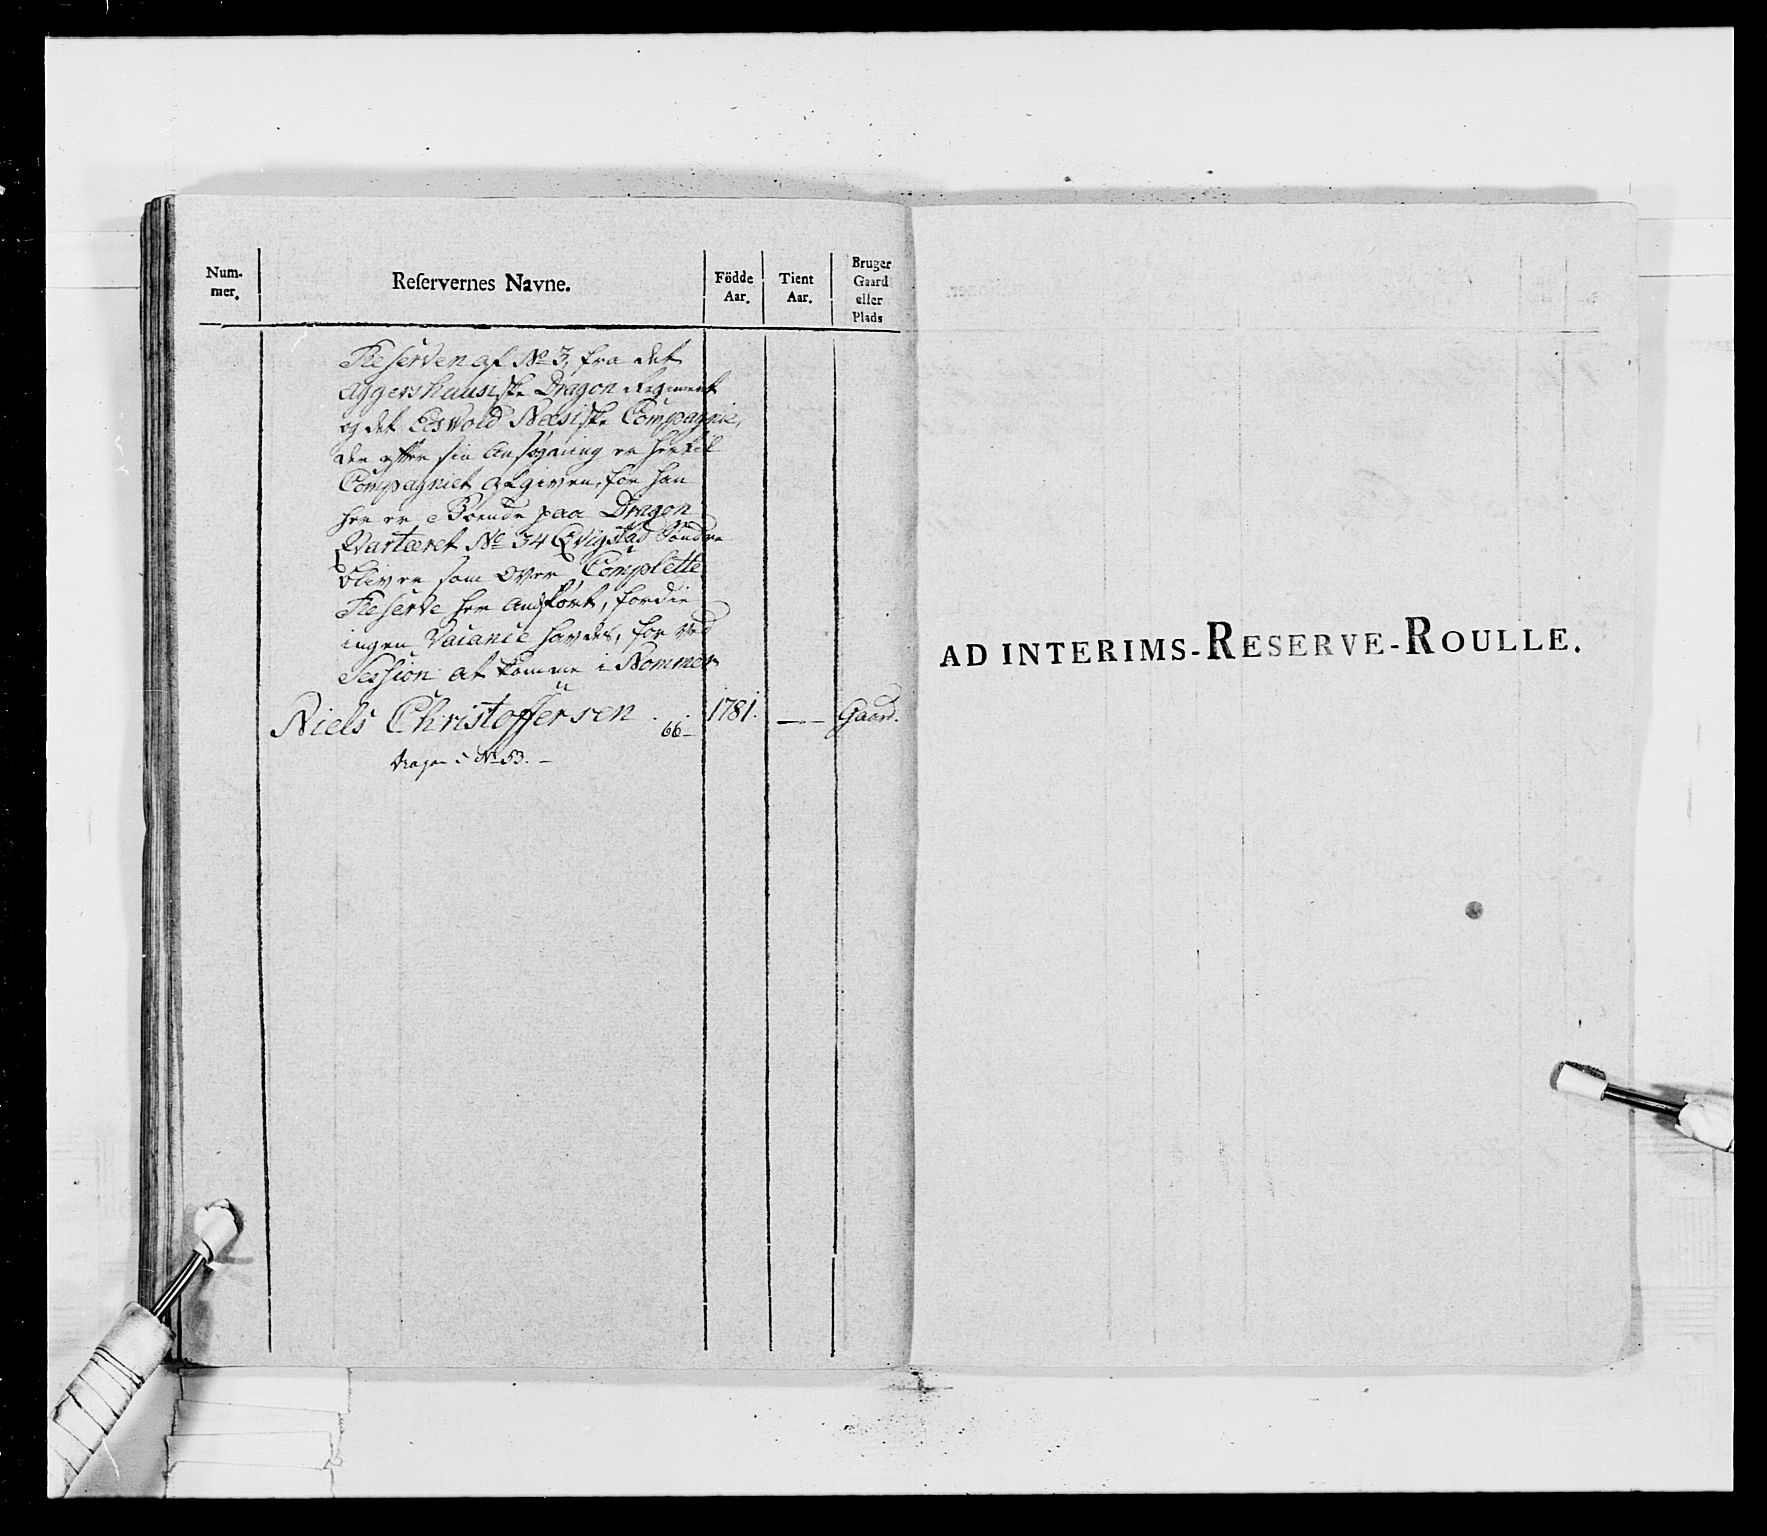 Num-
mer.
Reſervernes Navne.
Födde
Aar.
Tient
Aar.
Bruger
Gaard
eller
Plads
Reserven af No 3, fra det
Aggershuusiske Dragon Regiment
og det Eeswold Næsiske Compagnie,
der efter sin Ansøgning er hertil
Compagniet afgiven, for han
her er Boende paa Dragon
Qvarteret No 34 Qvigstad Søndre
bliver som Over Complette
Reserve her Andført, fordie
ingen Vacance havdes, for ved
Session at komme i Nommer
Niels Christoffersen 66 1781. — Gaard.
No 53. —
AD INTERIMS-RESERVE-ROULLE.